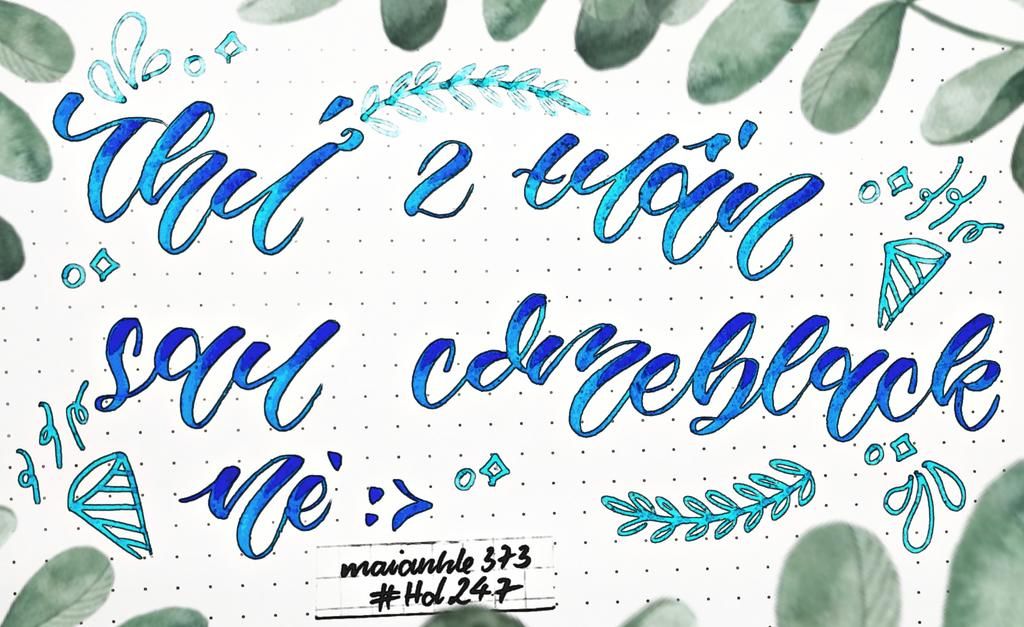 Thứ 2 tuần
sau comeback
nè :>
maianhle 373
#Hd 247